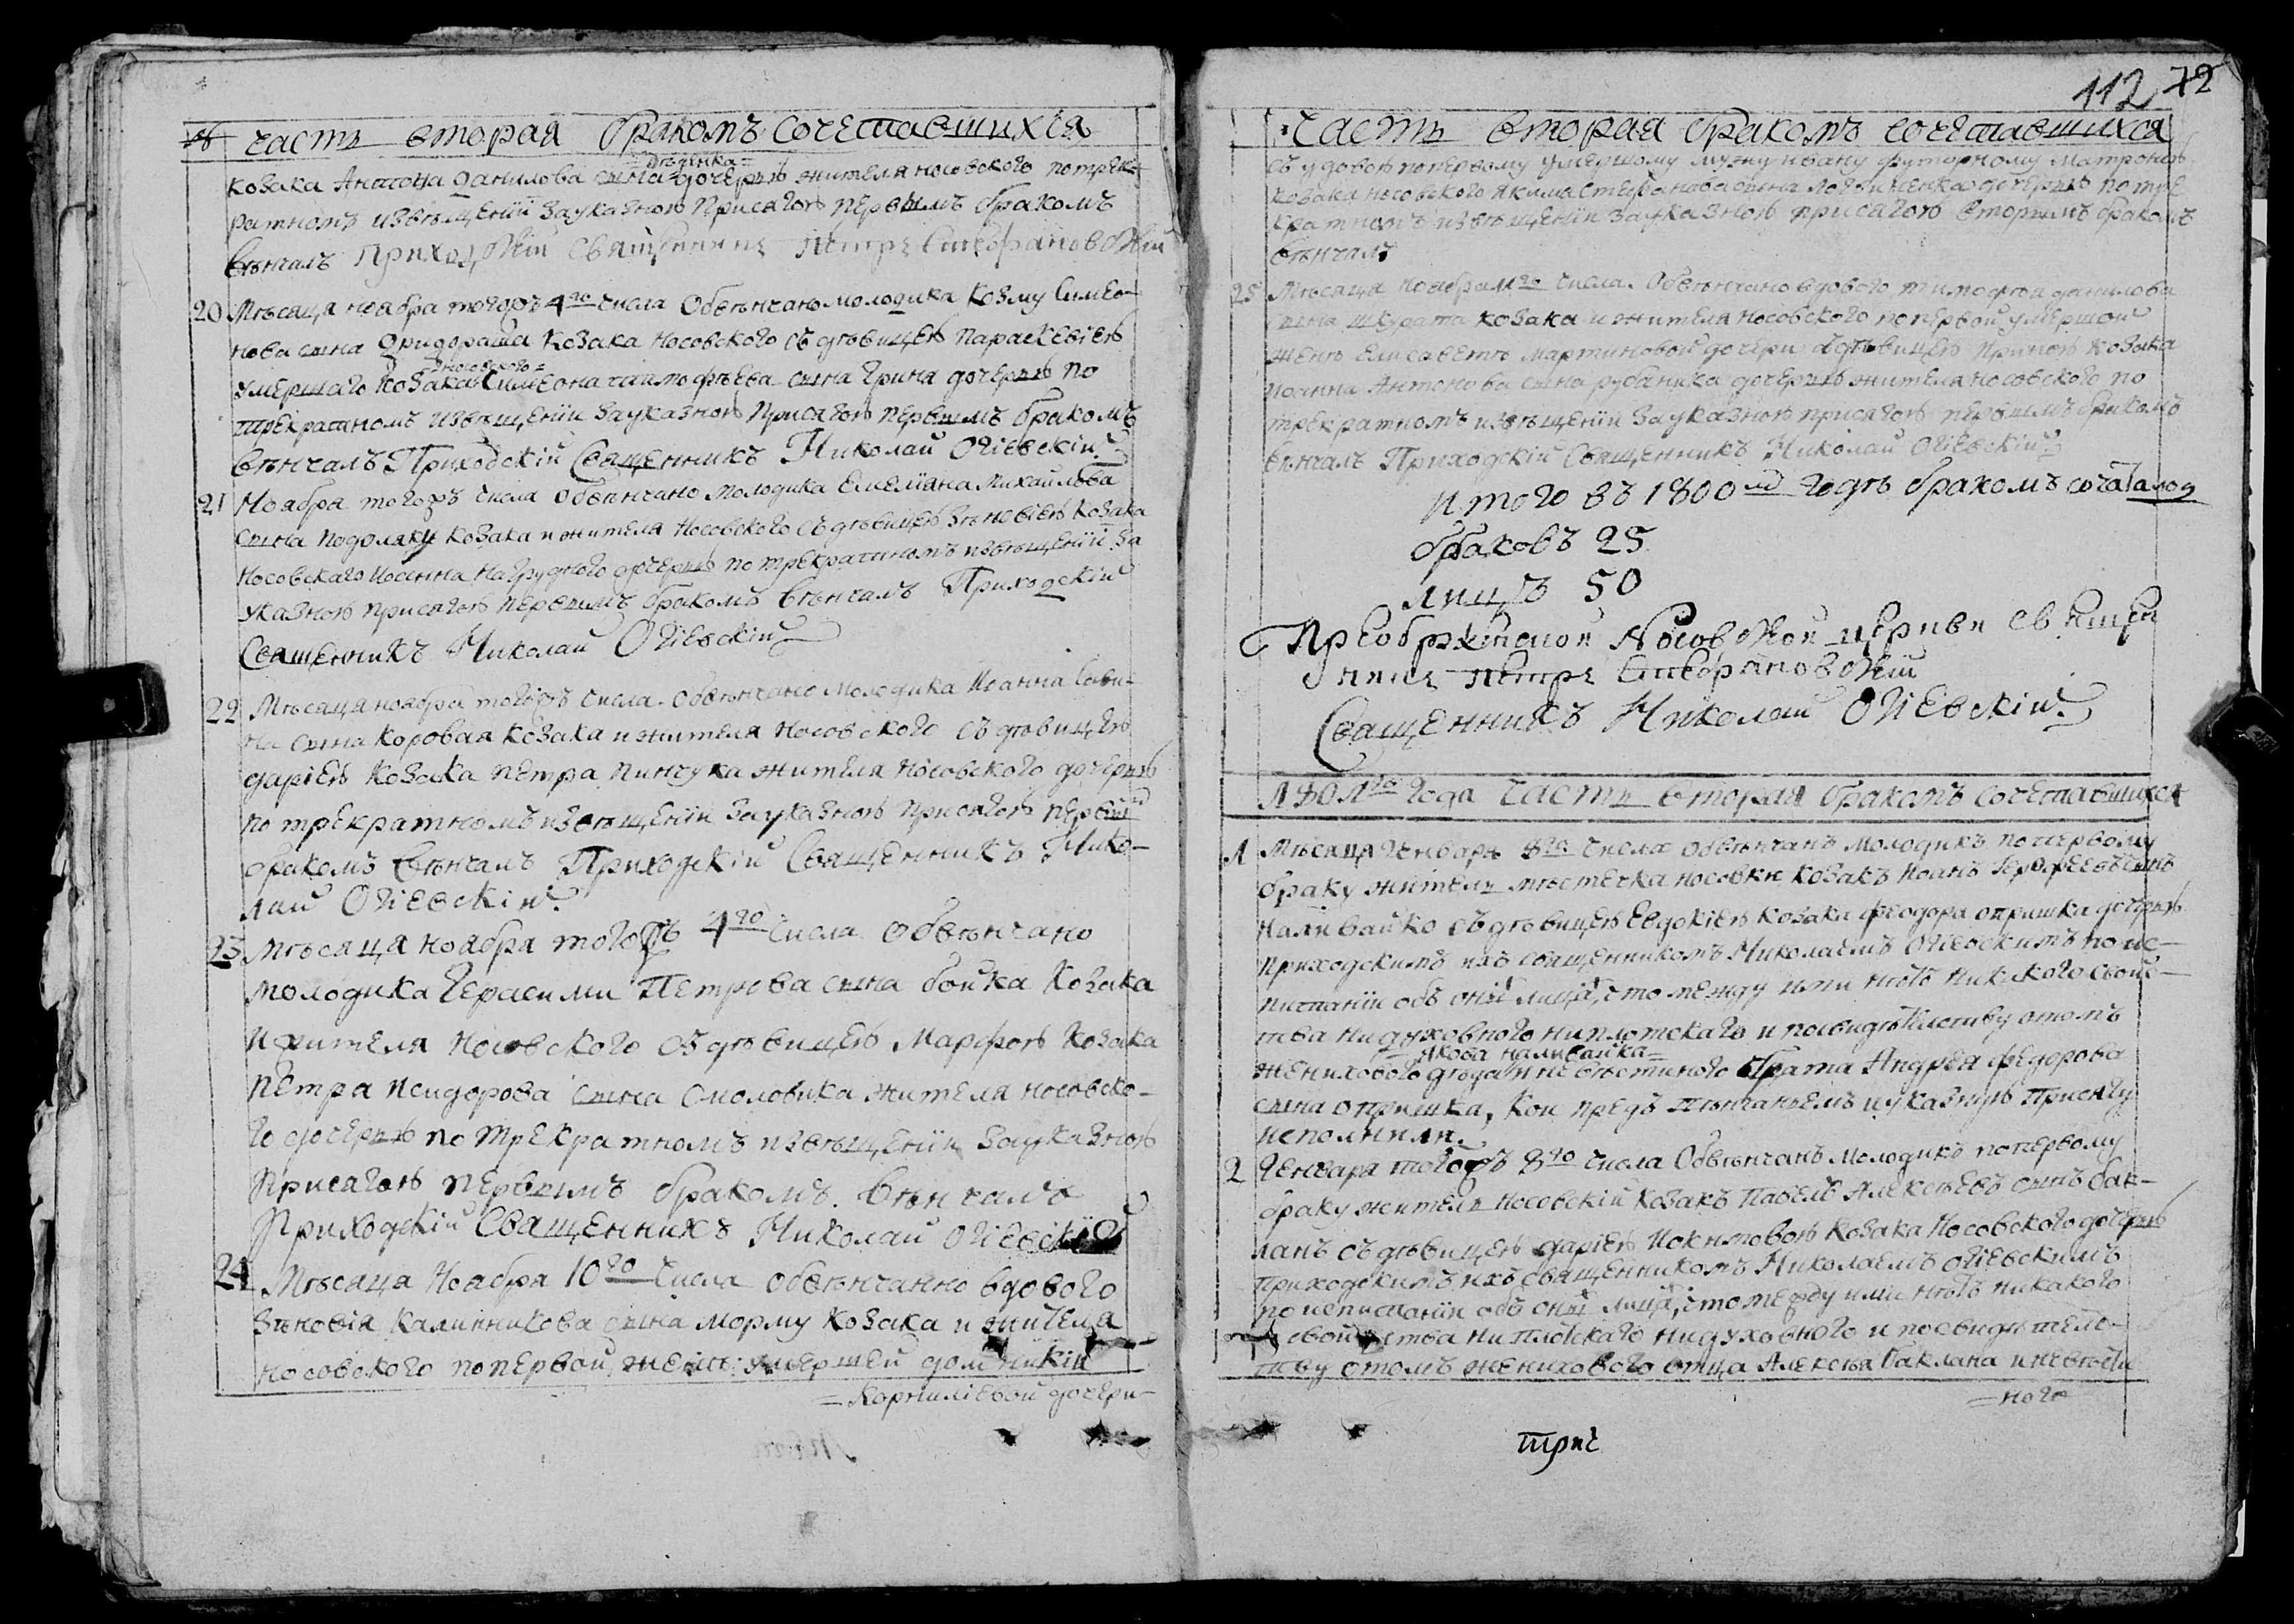 № часть вторая бракомъ сочетавшихся
=Дѣденка=
козака Антона данилова сына дочерью жителя носовского потрек-
ратномъ извѣщеніи зауказною присягою первымъ бракомъ
вѣнчалъ приходскій священникъ петръ Стефановскій
20 Мѣсяца ноября тогожъ 4го числа Обвѣнчано молодика Козму Симео-
нова сына дридораша козака Носовского съ дѣвицею параскевіею
=носовского=
умершаго козака Симеона тимофѣева сына грина дочерью по
трекратномъ извѣщеніи зауказною присягою первымъ бракомъ
вѣнчалъ Приходскій Священникъ Николай Огіевскій
21 Ноября тогожъ числа обвѣнчано молодика Емеліяна михайлова
сына подоляку козака и жителя Носовского съ дѣвицею зѣновіею козака
Носовскаго Иосифа нагрудного дочерью по трекратномъ извѣщеніи за
указною присягою первымъ бракомъ вѣнчалъ Приходскій
Священникъ Николай Огіевскій
22 Мѣсяца ноября тогожъ числа. обвѣнчано молодика Иоанна Сави-
на сына коровая козака и жителя Носовского съ дѣвицею
даріею козака петра пинчука жителя Носовского дочерью
по трекратномъ извѣщеніи зауказною присягою первый
бракомъ вѣнчалъ Приходскій Священникъ Нико-
лай Огіевскій
23 Мѣсяца ноября тогожъ 4го числа обвѣнчано
молодика герасими Петрова сына бойка козака
и жителя Носовского съ дѣвицею Марфою козака
петра исидорова сына смоловика жителя носовско-
го дочерью по трекратномъ извѣщеніи зауказною
присягою первымъ бракомъ. вѣнчалъ
Приходскій Священникъ Николай Огіевскій
24 Мѣсяца Ноября 10го числа обвѣнчанно вдового
зѣновія калинникова сына морму козака и жителя
носовского попервой женѣ умершей домникіи
=корниліевой дочери=
112 72
часть вторая бракомъ сочетавшихся
съ удовою попервому умершому мужу ивану футорному матроною
козака носовского якима стефанова сына дочерью по тре
кратномъ извѣщеніи зауказною присягою вторымъ бракомъ
вѣнчалъ
25 Мѣсяца ноября го числа. Обвѣнчано вдового тимофея данилова
сына шкурата козака и жителя носовского попервой умершой
женѣ елисаветѣ мартиновой дочери здѣвицею ириною козака
иоанна антонова сына рубаника дочерью жителя носовского по
трекратномъ извѣщеніи зауказною присягою первымъ бракомъ
вѣнчалъ Приходскій Священникъ Николай Огіевскій
итого въ 1800мъ годѣ бракомъ сочаталод
браковъ 25
лицъ 50
Преображенской Носовской церкви священ
никъ петръ Стефановскій
Священникъ Николай Огіевскій
1801го года часть вторая бракомъ сочетавшихся
1 Мѣсяца Генваря 8го числа обвѣнчанъ молодикъ попервому
браку житель мѣстечка носовки козакъ иоанъ ерофеевъ сынъ
наливайко съ дѣвицею Евдокіею козака феодора опришка дочерью
приходскимъ ихъ священникомъ Николаемъ Огіевскимъ по ис-
питаніи объ оныхъ лицахъ, что между ими нѣтъ никакого свойс-
тва ни духовного ни плотскаго и посвидѣтелству отомъ
=Якова наливайка=
жениховаго дѣда и невѣстиного брата Андрея федорова
сына опришка, кои предъ вѣнчаньемъ и указную присягу
исполнили.
2 Генваря тогожъ 8го числа Обвѣнчанъ молодикъ попервому
браку житель носовскій козакъ Павелъ Алексѣевъ сынъ бак-
ланъ съ дѣвицею даріею козака Носовского дочерью
приходскимъ ихъ священникомъ Николаемъ Огіевскимъ
по испитаніи объ оныхъ лицахъ, что между ими нѣтъ никакого
свойства ни плотскаго ни духовного и посвидѣтель-
тву отомъ жениховаго отца Алексѣя баклана и невѣсти
=ного
трис